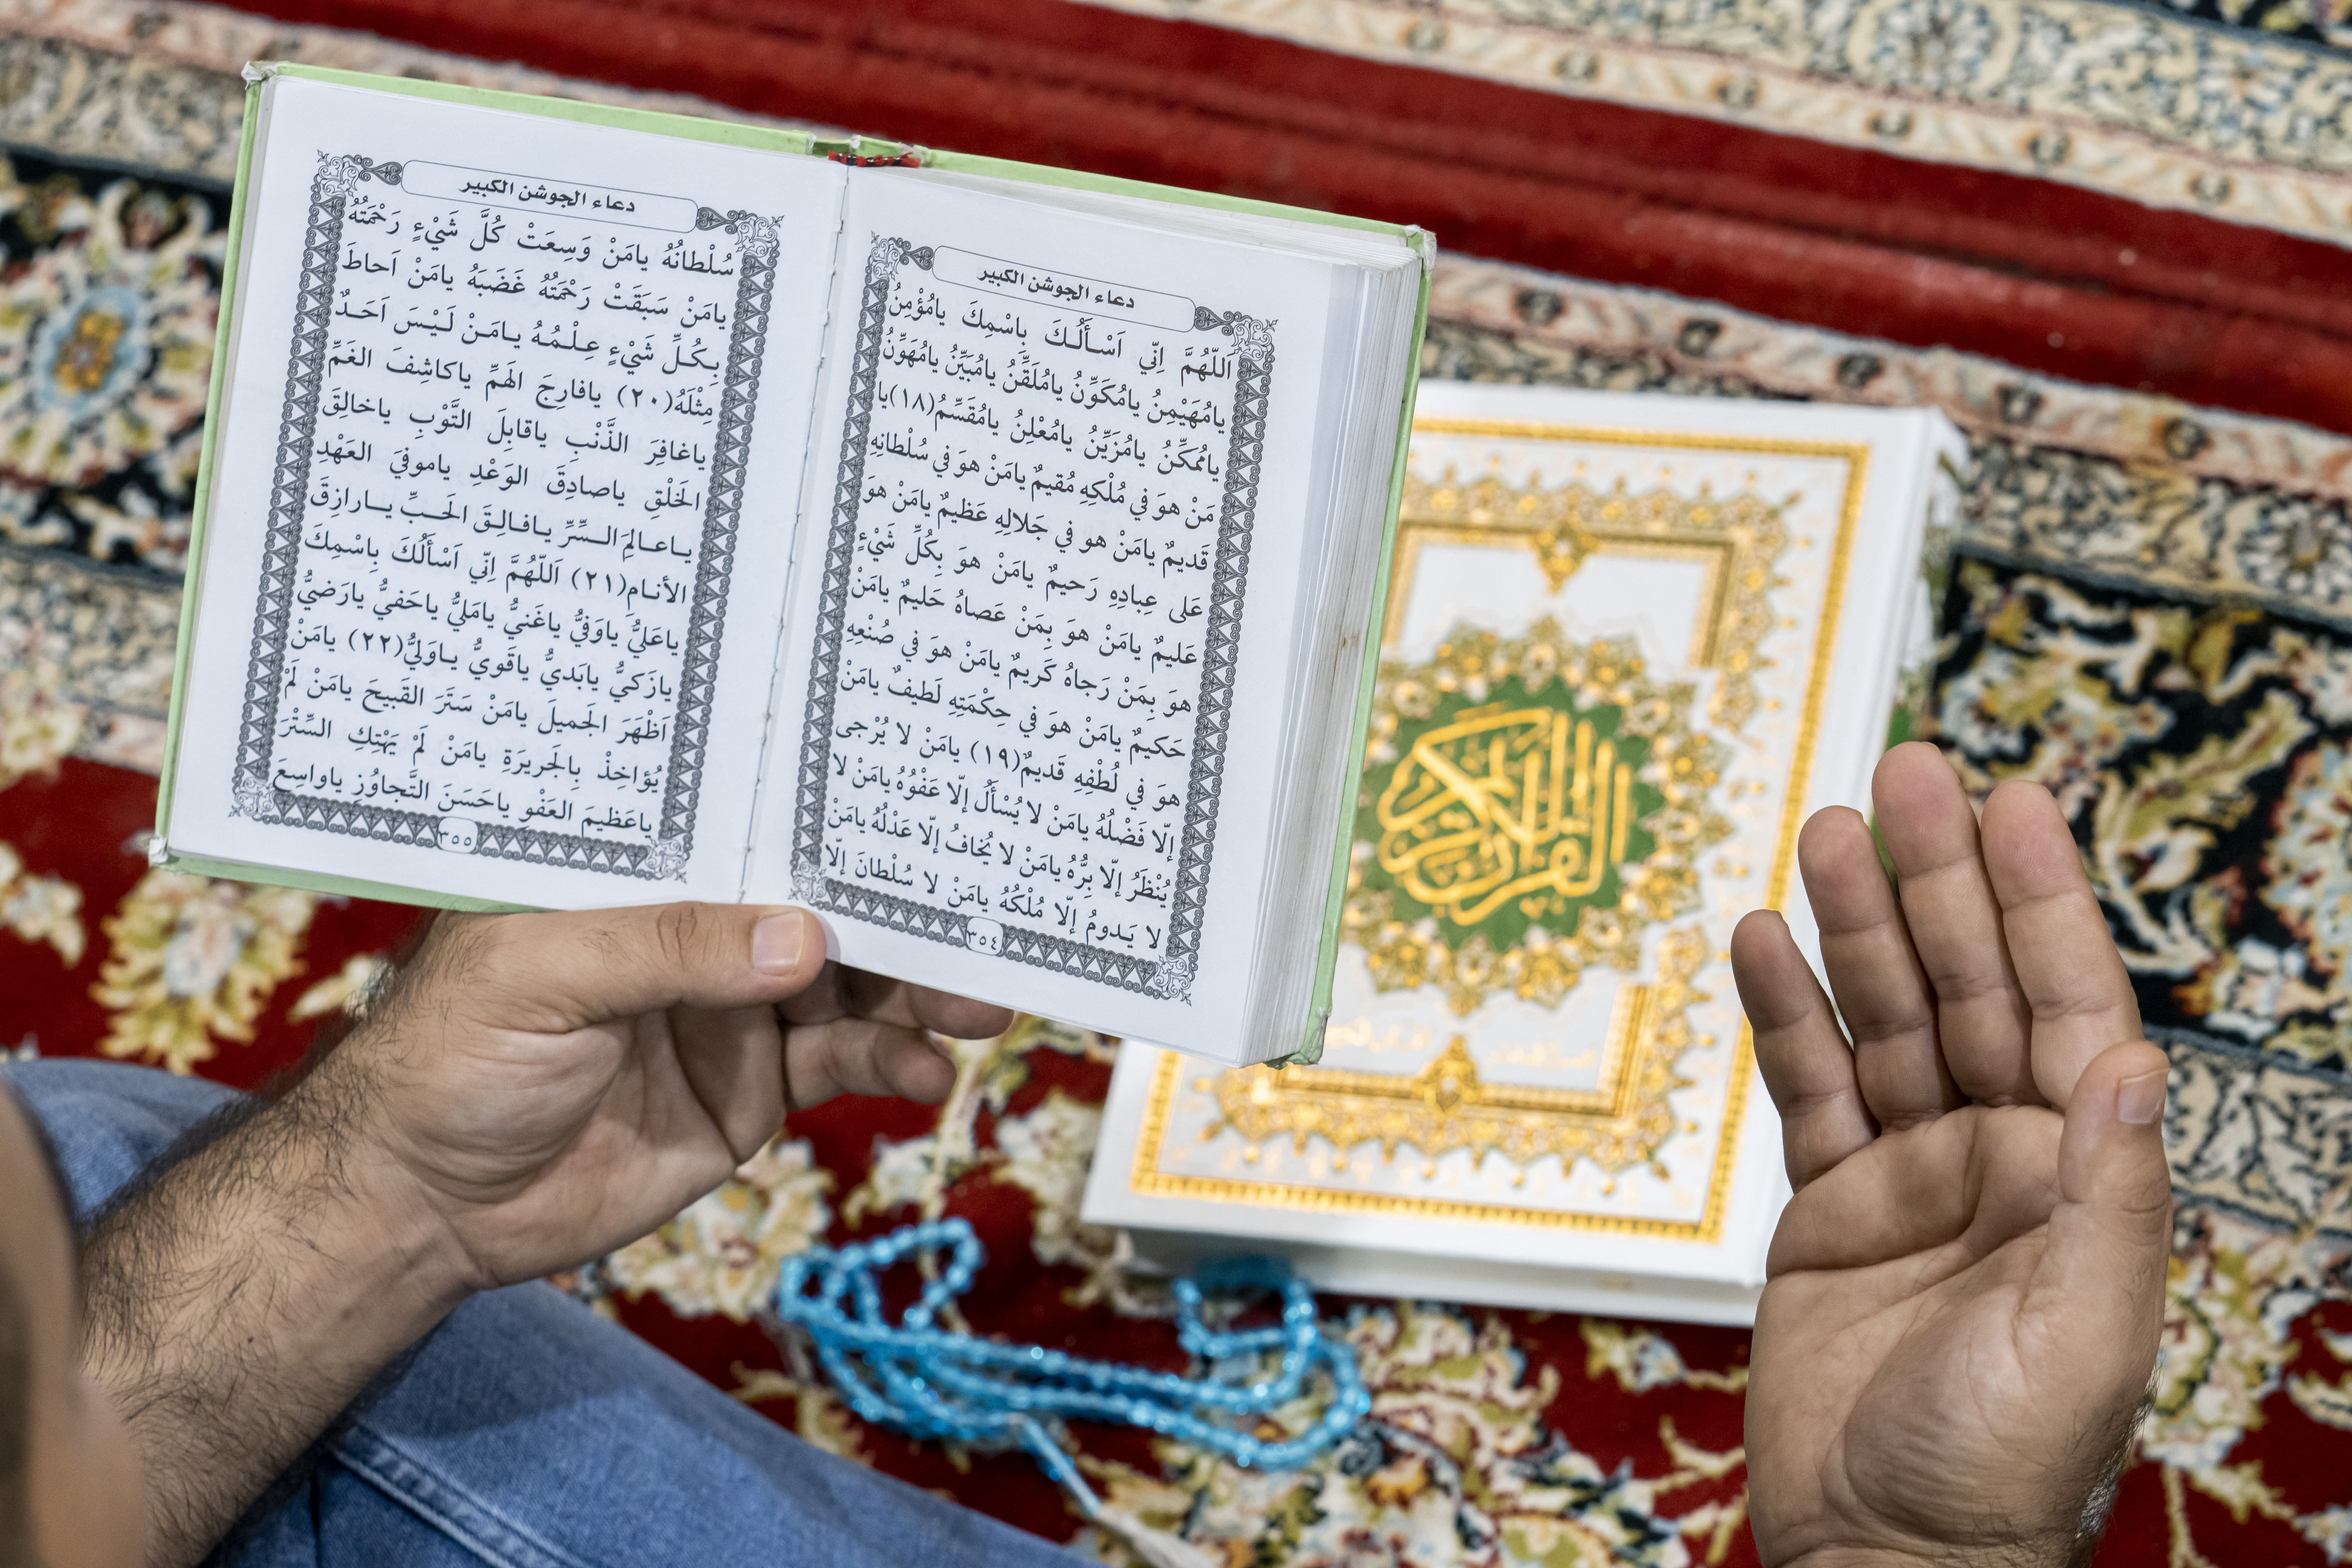 دعاء الجوشن الكبير
اَللّهُمَّ اِنِّي اَسْـأَلُـكَ بِاسْمِكَ يامُؤْمِنُ
يامُهَيْمِنُ يامُكَوِّنُ يامُلَقِّنُ يامُبَيِّنُ يامُهَوِّنُ
ياُممَكِّنُ يامُزَيِّنُ يامُعْلِنُ يامُقَسِّمُ(١٨)يا
مَنْ هوَ في مُلْكِهِ مُقيمٌ يامَنْ هوَ في سُلْطانِهِ
قَديمٌ يامَنْ هو في جَلالِهِ عَظيمٌ يامَنْ هوَ
عَلى عِبادِهِ رَحيمٌ يامَنْ هوَ بِكُلِّ شَيْءٍ
عَليمٌ يامَنْ هوَ بِمَنْ عَصاهُ حَليمٌ يامَنْ
هوَ بِمَنْ رَجاهُ كَريمٌ يامَنْ هوَ في صُنْعِهِ
حَكيمٌ يامَنْ هوَ في حِكْمَتِهِ لَطيفٌ يامَنْ
هوَ في لُطْفِهِ قَديمٌ(١٩) يامَنْ لا يُرْجى
إلّا فَضْلُهُ يامَنْ لا يُسْأَلُ إلّا عَفْوُهُ يامَنْ لا
يُنْظَرُ إلّا بِرُّهُ يامَنْ لا يُخافُ إلّا عَدْلُهُ يامَنْ
لا يَـدومُ إلّا مُلْكُهُ يامَنْ لا سُلْطانَ إلّا
٣٥٤
دعاء الجوشن الكبير
سُلْطانُهُ يامَنْ وَسِعَتْ كُلَّ شَيْءٍ رَحْمَتُهُ
يامَنْ سَبَقَتْ رَحْمَتُهُ غَضَبَهُ يامَنْ اَحاطَ
بِـكُـلِّ شَيْءٍ عِـلْـمُـهُ يـامَـنْ لَـيْـسَ اَحَـدٌ
مِثْلَهُ(٢٠) يافارِجَ الهَمِّ ياكاشِفَ الغَمِّ
ياغافِرَ الذَّنْبِ ياقابِلَ التَّوْبِ ياخالِقَ
الخَلْقِ ياصادِقَ الوَعْدِ ياموفيَ العَهْدِ
يـاعـالِمَ الـسِّرِّ يـافـالِـقَ الحَـبِّ يــارازِقَ
الأنـام(٢١) اَللّهُمَّ اِنِّي اَسْأَلُكَ بِاسْمِكَ
ياعَليُّ ياوَفيُّ ياغَنيُّ يامَليُّ ياحَفيُّ يارَضيُّ
يازَكيُّ يابَديُّ ياقَويُّ يـاوَليُّ(٢٢) يامَنْ
اَظْهَرَ الجَميلَ يامَنْ سَتَرَ القَبيحَ يامَنْ لَمْ
يُؤاخِذْ بِالجَريرَةِ يامَنْ لَمْ يَهْتِكِ السِّتْرَ
ياعَظيمَ العَفْوِ ياحَسَنَ التَّجاوُزِ ياواسِعَ
٣٥٥
القرآن الكريم